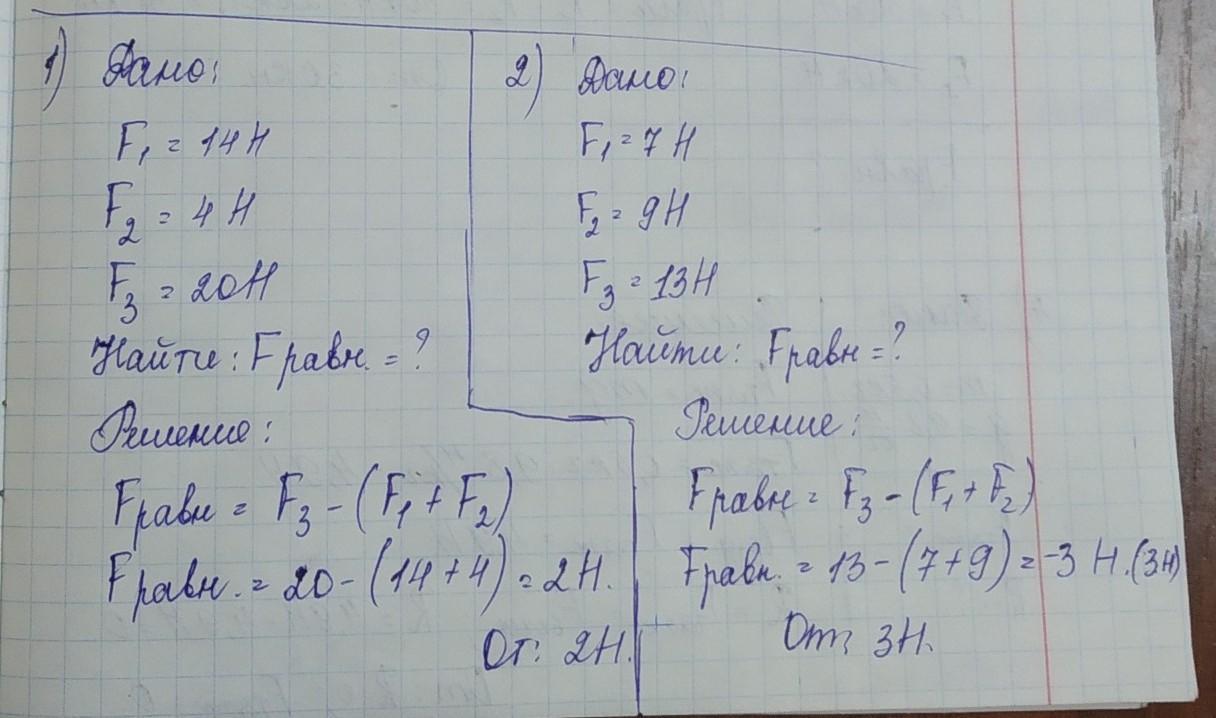 1) Дано:
F₁ = 14 Н
F₂ = 4 Н
F₃ = 20 Н
Найти: Fравн. = ?
Решение:
Fравн = F₃ - (F₁ + F₂)
Fравн. = 20 - (14 + 4) = 2 Н.
От: 2 Н.
2) Дано:
F₁ = 7 Н
F₂ = 9 Н
F₃ = 13 Н
Найти: Fравн = ?
Решение:
Fравн = F₃ - (F₁ + F₂)
Fравн. = 13 - (7 + 9) = -3 Н. (3 Н)
От: 3 Н.